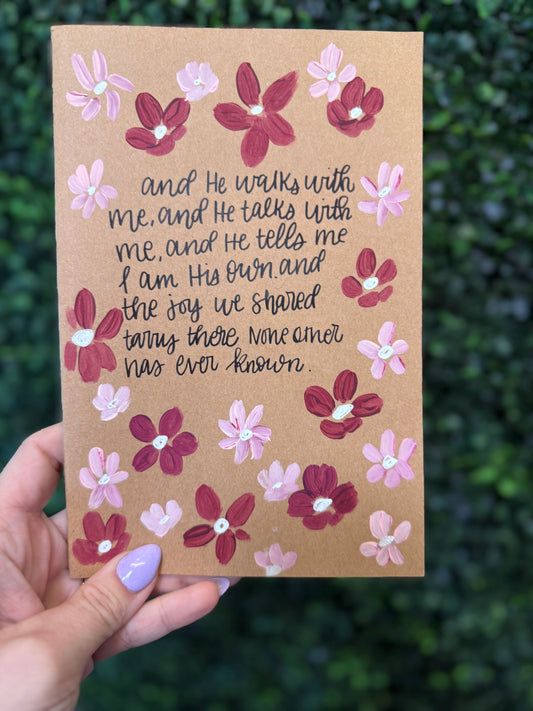 and He walks with
me, and He talks with
me, and He tells me
I am His own. and
the joy we shared
tarry there None other
has ever known.